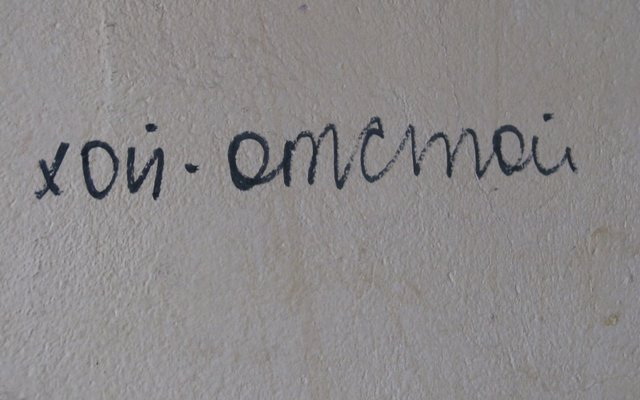 хой · отстой